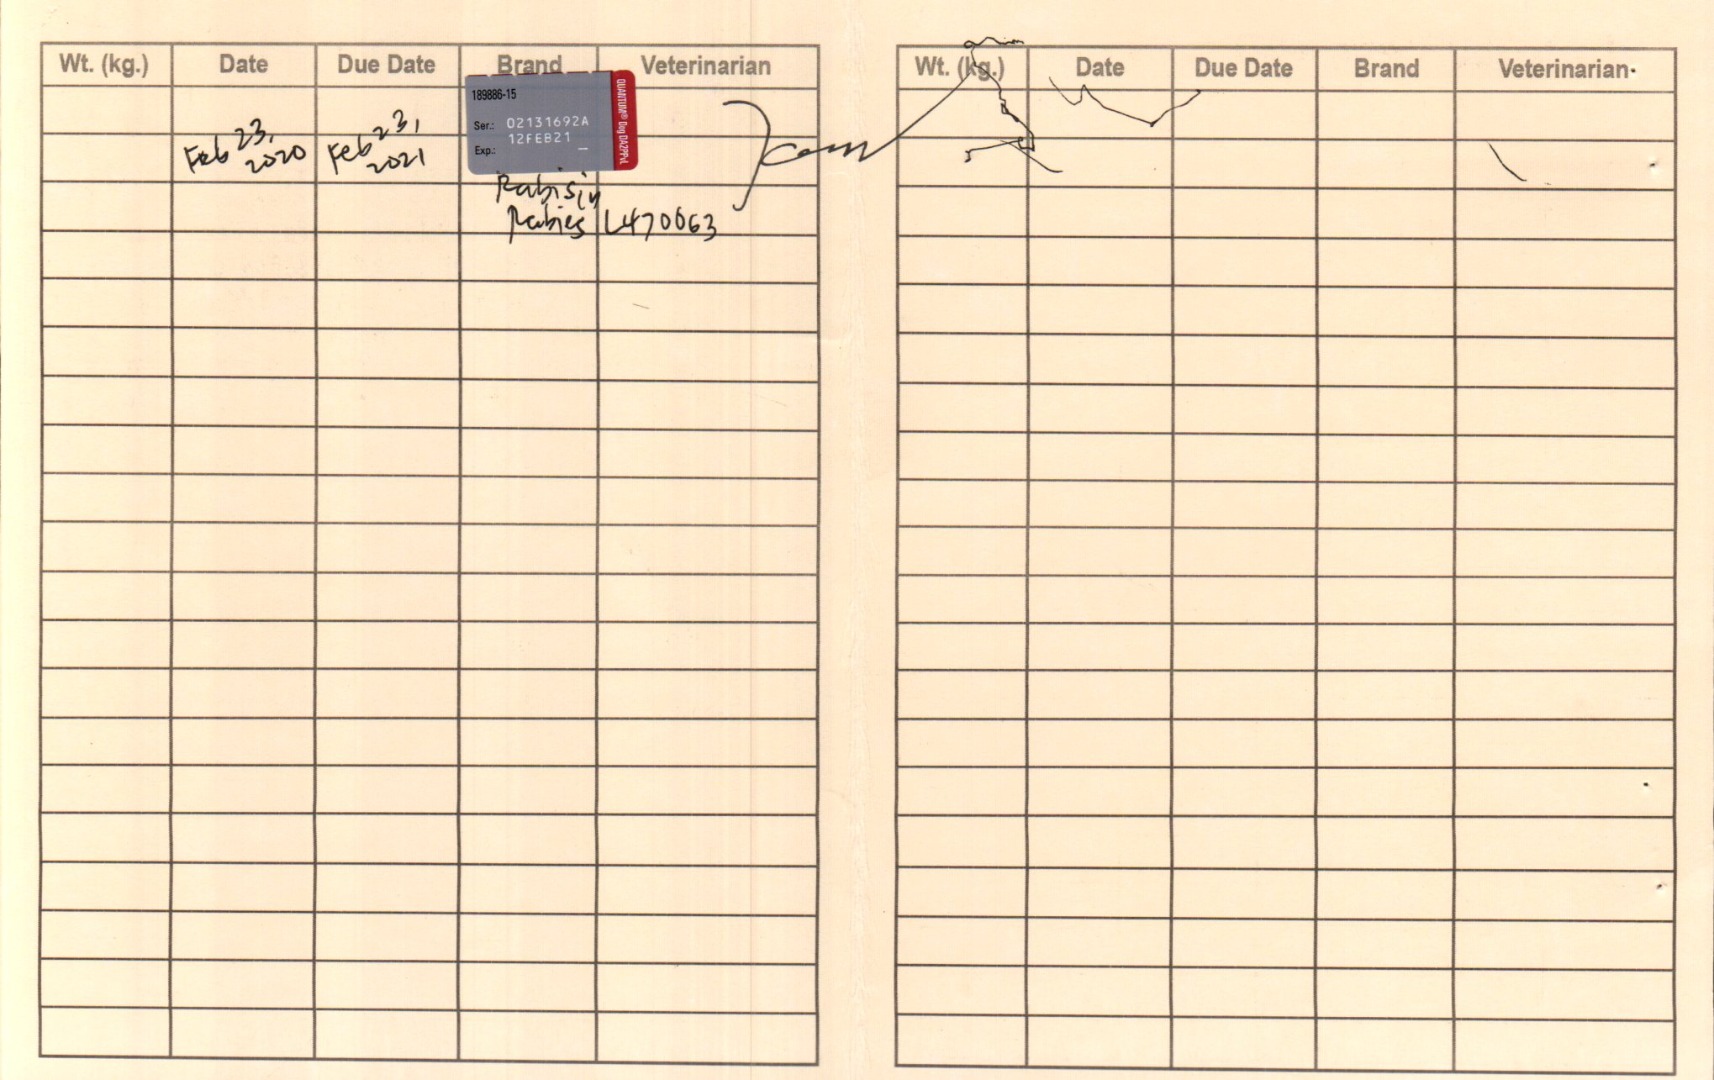 Wt. (kg.) Date Due Date Brand Veterinarian
189886-15
Ser.: 02131692A
12FEB21
Exp.:
QUANTUM® Dog DA2PPvL
Feb 23,
2020
Feb 23,
2021
Rabisin
Rabies L470063
Wt. (kg.) Date Due Date Brand Veterinarian